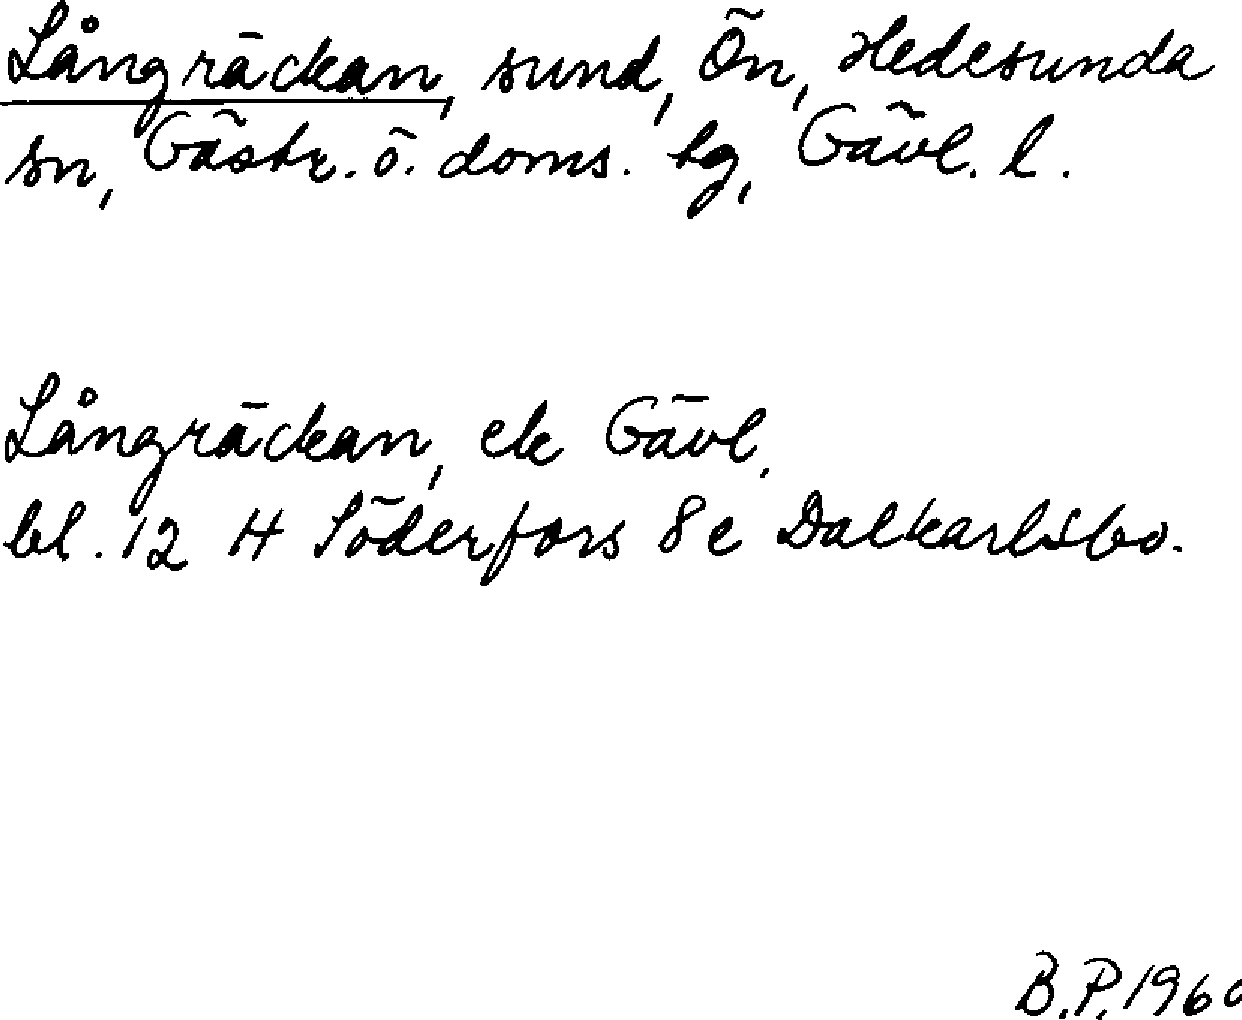 Långräckan, sund, Ön, Hedesunda
sn, Gästr. ö. doms. tg, Gävl. l.
Långräckan, ek Gävl.
bl. 12 H Söderfors 8 e Dalkarlsbo.
B.P. 1960